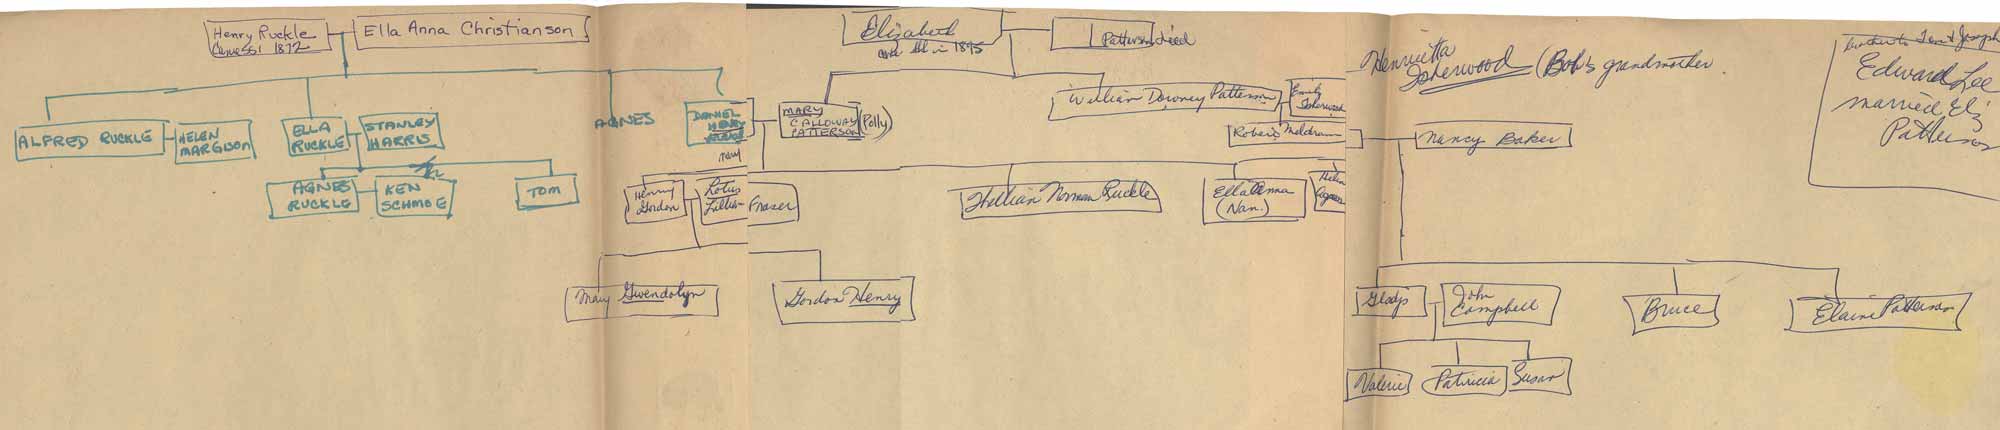 Henry Ruckle
Came SSI 1872
Ella Anna Christianson
Elizabeth
in 1895
Patterson died
Henrietta
Isherwood (Bob's grandmother
brother to Tom & Joseph
Edward Lee
married Eliz
Patterson
ALFRED RUCKLE
HELEN
MARGISON
ELLA
RUCKLE
STANLEY
HARRIS
AGNES
DANIEL
HENRY
MARY
CALLOWAY
PATTERSON
(Polly)
William Downey Patterson
Emily
Isherwood
Robert Meldrum
Nancy Baker
AGNES
RUCKLE
KEN
SCHMOE
TOM
Henry
Gordon
Lotus
Lillian Fraser
William Norman Ruckle
Ella Anna
(Nan.)
Helen
Mary Gwendolyn
Gordon Henry
Gladys
John
Campbell
Bruce
Elaine Patterson
Valerie
Patricia
Susan